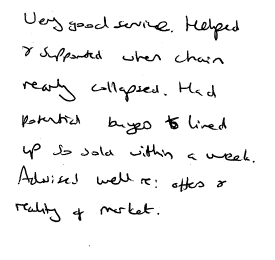 Very good service. Helped
& supported when chain
nearly collapsed. Had
potential buyers lined
up so sold within a week.
Advised well re: offers &
reality of market.